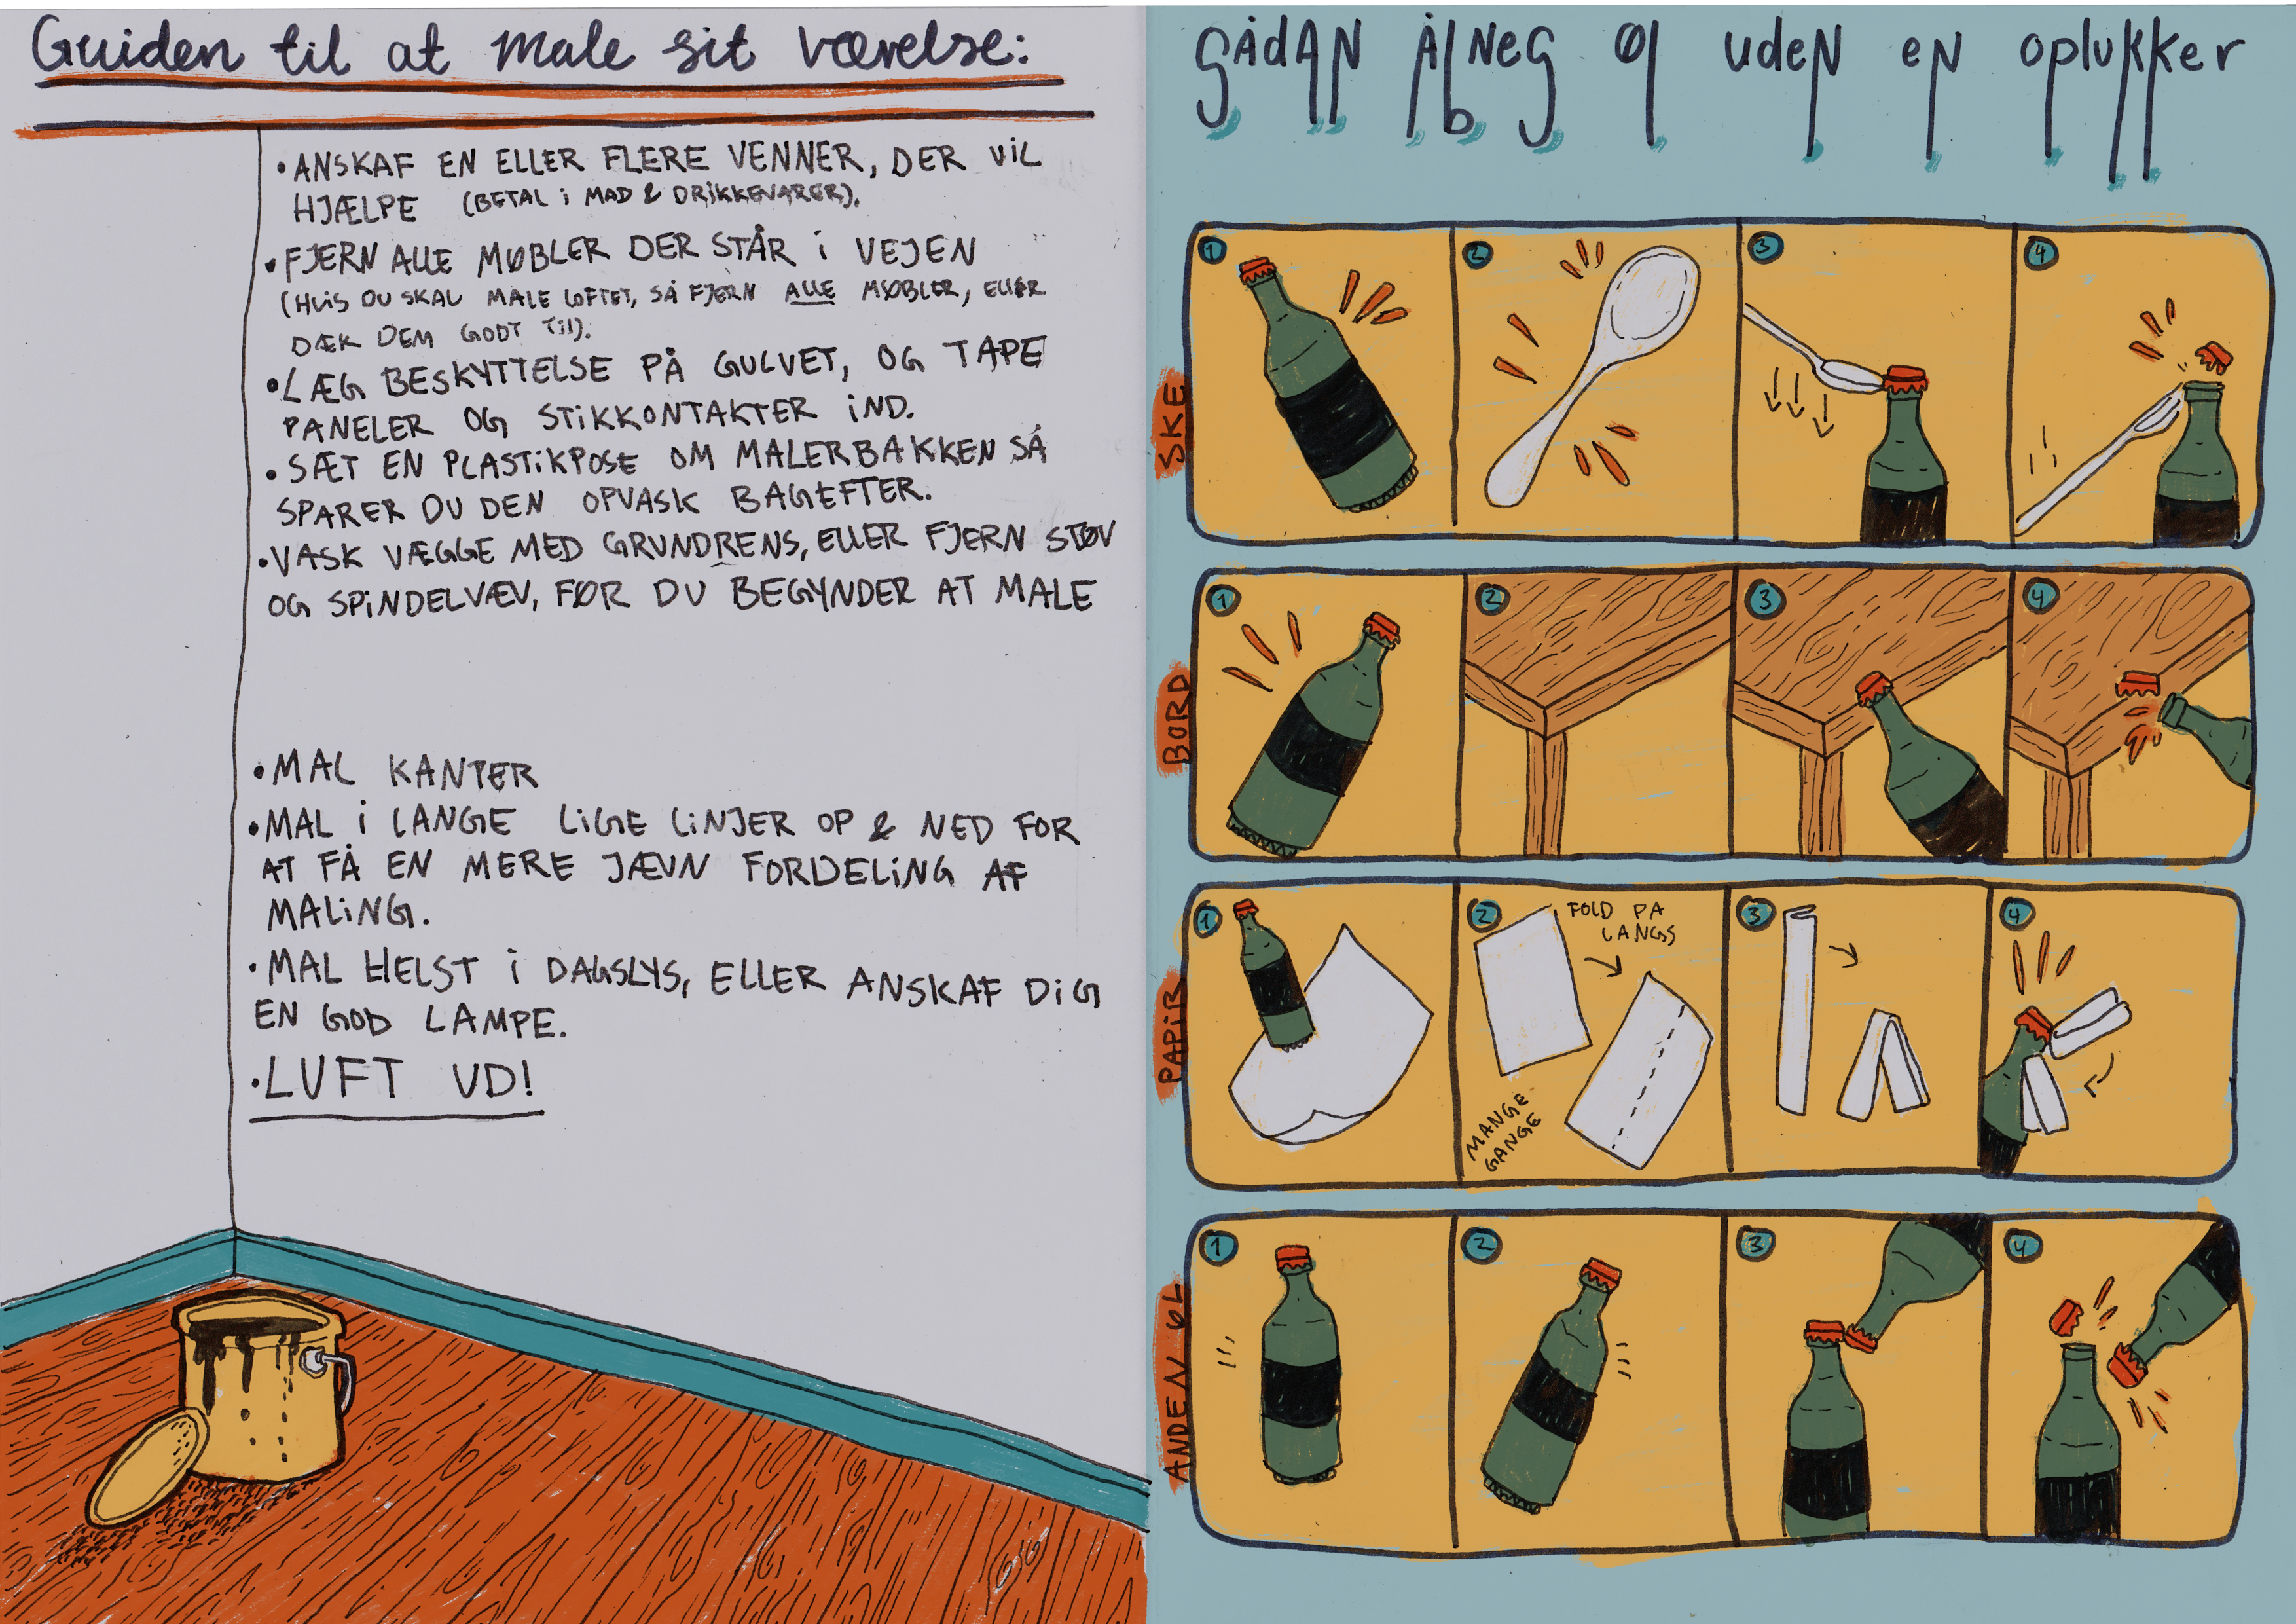 Guiden til at male sit værelse:
• ANSKAF EN ELLER FLERE VENNER, DER VIL
HJÆLPE (BETAL i MAD & DRIKKEVARER).
• FJERN ALLE MØBLER DER STÅR i VEJEN
(HVIS DU SKAL MALE LOFTET, SÅ FJERN ALLE MØBLER, ELLER
DÆK DEM GODT Til).
• LÆG BESKYTTELSE PÅ GULVET, OG TAPE
PANELER OG STIKKONTAKTER IND.
• SÆT EN PLASTIKPOSE OM MALERBAKKEN SÅ
SPARER DU DEN OPVASK BAGEFTER.
• VASK VÆGGE MED GRUNDRENS, ELLER FJERN STØV
OG SPINDELVÆV, FØR DU BEGYNDER AT MALE
• MAL KANTER
• MAL i LANGE LIGE LINJER OP & NED FOR
AT FÅ EN MERE JÆVN FORDELING AF
MALING.
• MAL HELST i DAGSLYS, ELLER ANSKAF DIG
EN GOD LAMPE.
• LUFT UD!
SÅdAN ÅbNeS Øl udeN eN oplukker
SKE
1
2
3
4
BORD
1
2
3
4
PAPiR
1
2
FOLD PÅ
LANGS
MANGE
GANGE
3
4
ANDEN ØL
1
2
3
4